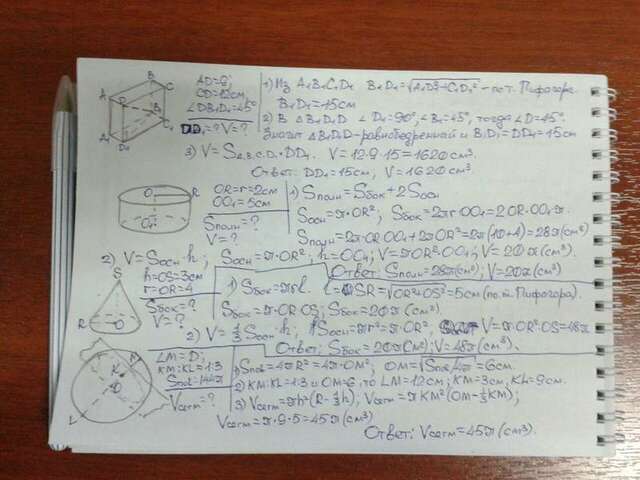 AD=9; 1) Из A₁B₁C₁D₁ B₁D₁=√A₁D₁²+C₁D₁² - по т. Пифагора.
CD=12см, B₁D₁=15см
∠DB₁D₁=45° 2) В △B₁D₁D ∠D₁=90°, ∠B₁=45°, тогда ∠D=45°.
DD₁=? V=? Значит △B₁D₁D-равнобедренный и B₁D₁=DD₁=15см
3) V=S A₁B₁C₁D₁·DD₁. V=12·9·15=1620см³.
Ответ: DD₁=15см, V=1620см³.
OR=r=2см 1) Sполн=Sбок+2Sосн
OO₁=5см Sосн=π·OR²; Sбок=2πr·OO₁=2OR·OO₁·π.
Sполн=? Sполн=2π·OR·OO₁+2πOR²=2π(10+4)=28π(см²)
V=?
2) V=Sосн·h; Sосн=π·OR²; h=OO₁; V=πOR²·OO₁; V=20π(см³).
Ответ: Sполн=28π(см²); V=20π(см³)
h=OS=3см 1) Sбок=πrl l=SR=√OR²+OS²=5см (по т. Пифагора).
r=OR=4
Sбок=? Sбок=π·OR·OS; Sбок=20π(см²)
V=? 2) V=⅓Sосн·h; Sосн=πr²=π·OR², V=π·OR²·OS=48π
Ответ: Sбок=20π(см²); V=48π(см³).
LM=D; 1) Sпов=4πR²=4π·OM²; OM=√Sпов/4π=6см.
KM:KL=1:3 2) KM:KL=1:3 и OM=6, то LM=12см; KM=3см, KL=9см.
Sпов=144π 3) Vсегм=πh²(R-⅓h); Vсегм=πKM²(OM-⅓KM);
Vсегм=? Vсегм=π·9·5=45π(см³)
Ответ: Vсегм=45π(см³).